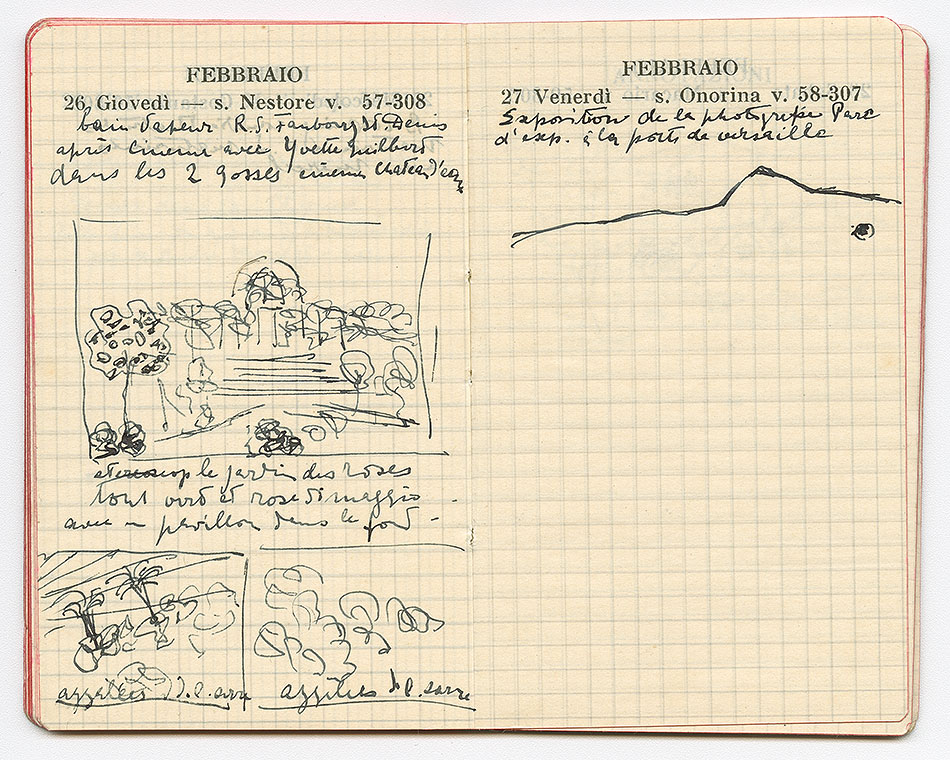 FEBBRAIO
26 Giovedì — s. Nestore v. 57-308
bain vapeur R.S. Faubourg St. Denis
après cinema avec Yvette Guilbert
dans les 2 gosses cinema Chateau d'eau
stereoscop le jardin des roses
tout vert et rose di maggio
avec un pavillon dans le fond -
d. l. serre
d. l. serre
FEBBRAIO
27 Venerdì — s. Onorina v. 58-307
Exposition de la photografie Parc
d'exp. à la porte de versaille